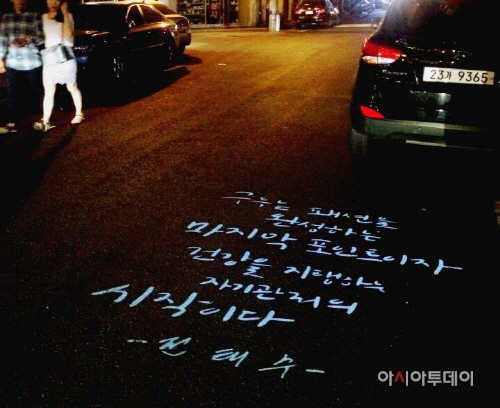 23가 9365
구두는 패션을
완성하는
마지막 포인트이자
건강을 지탱하는
자기관리의
시작이다
- 전태수 -
아시아투데이